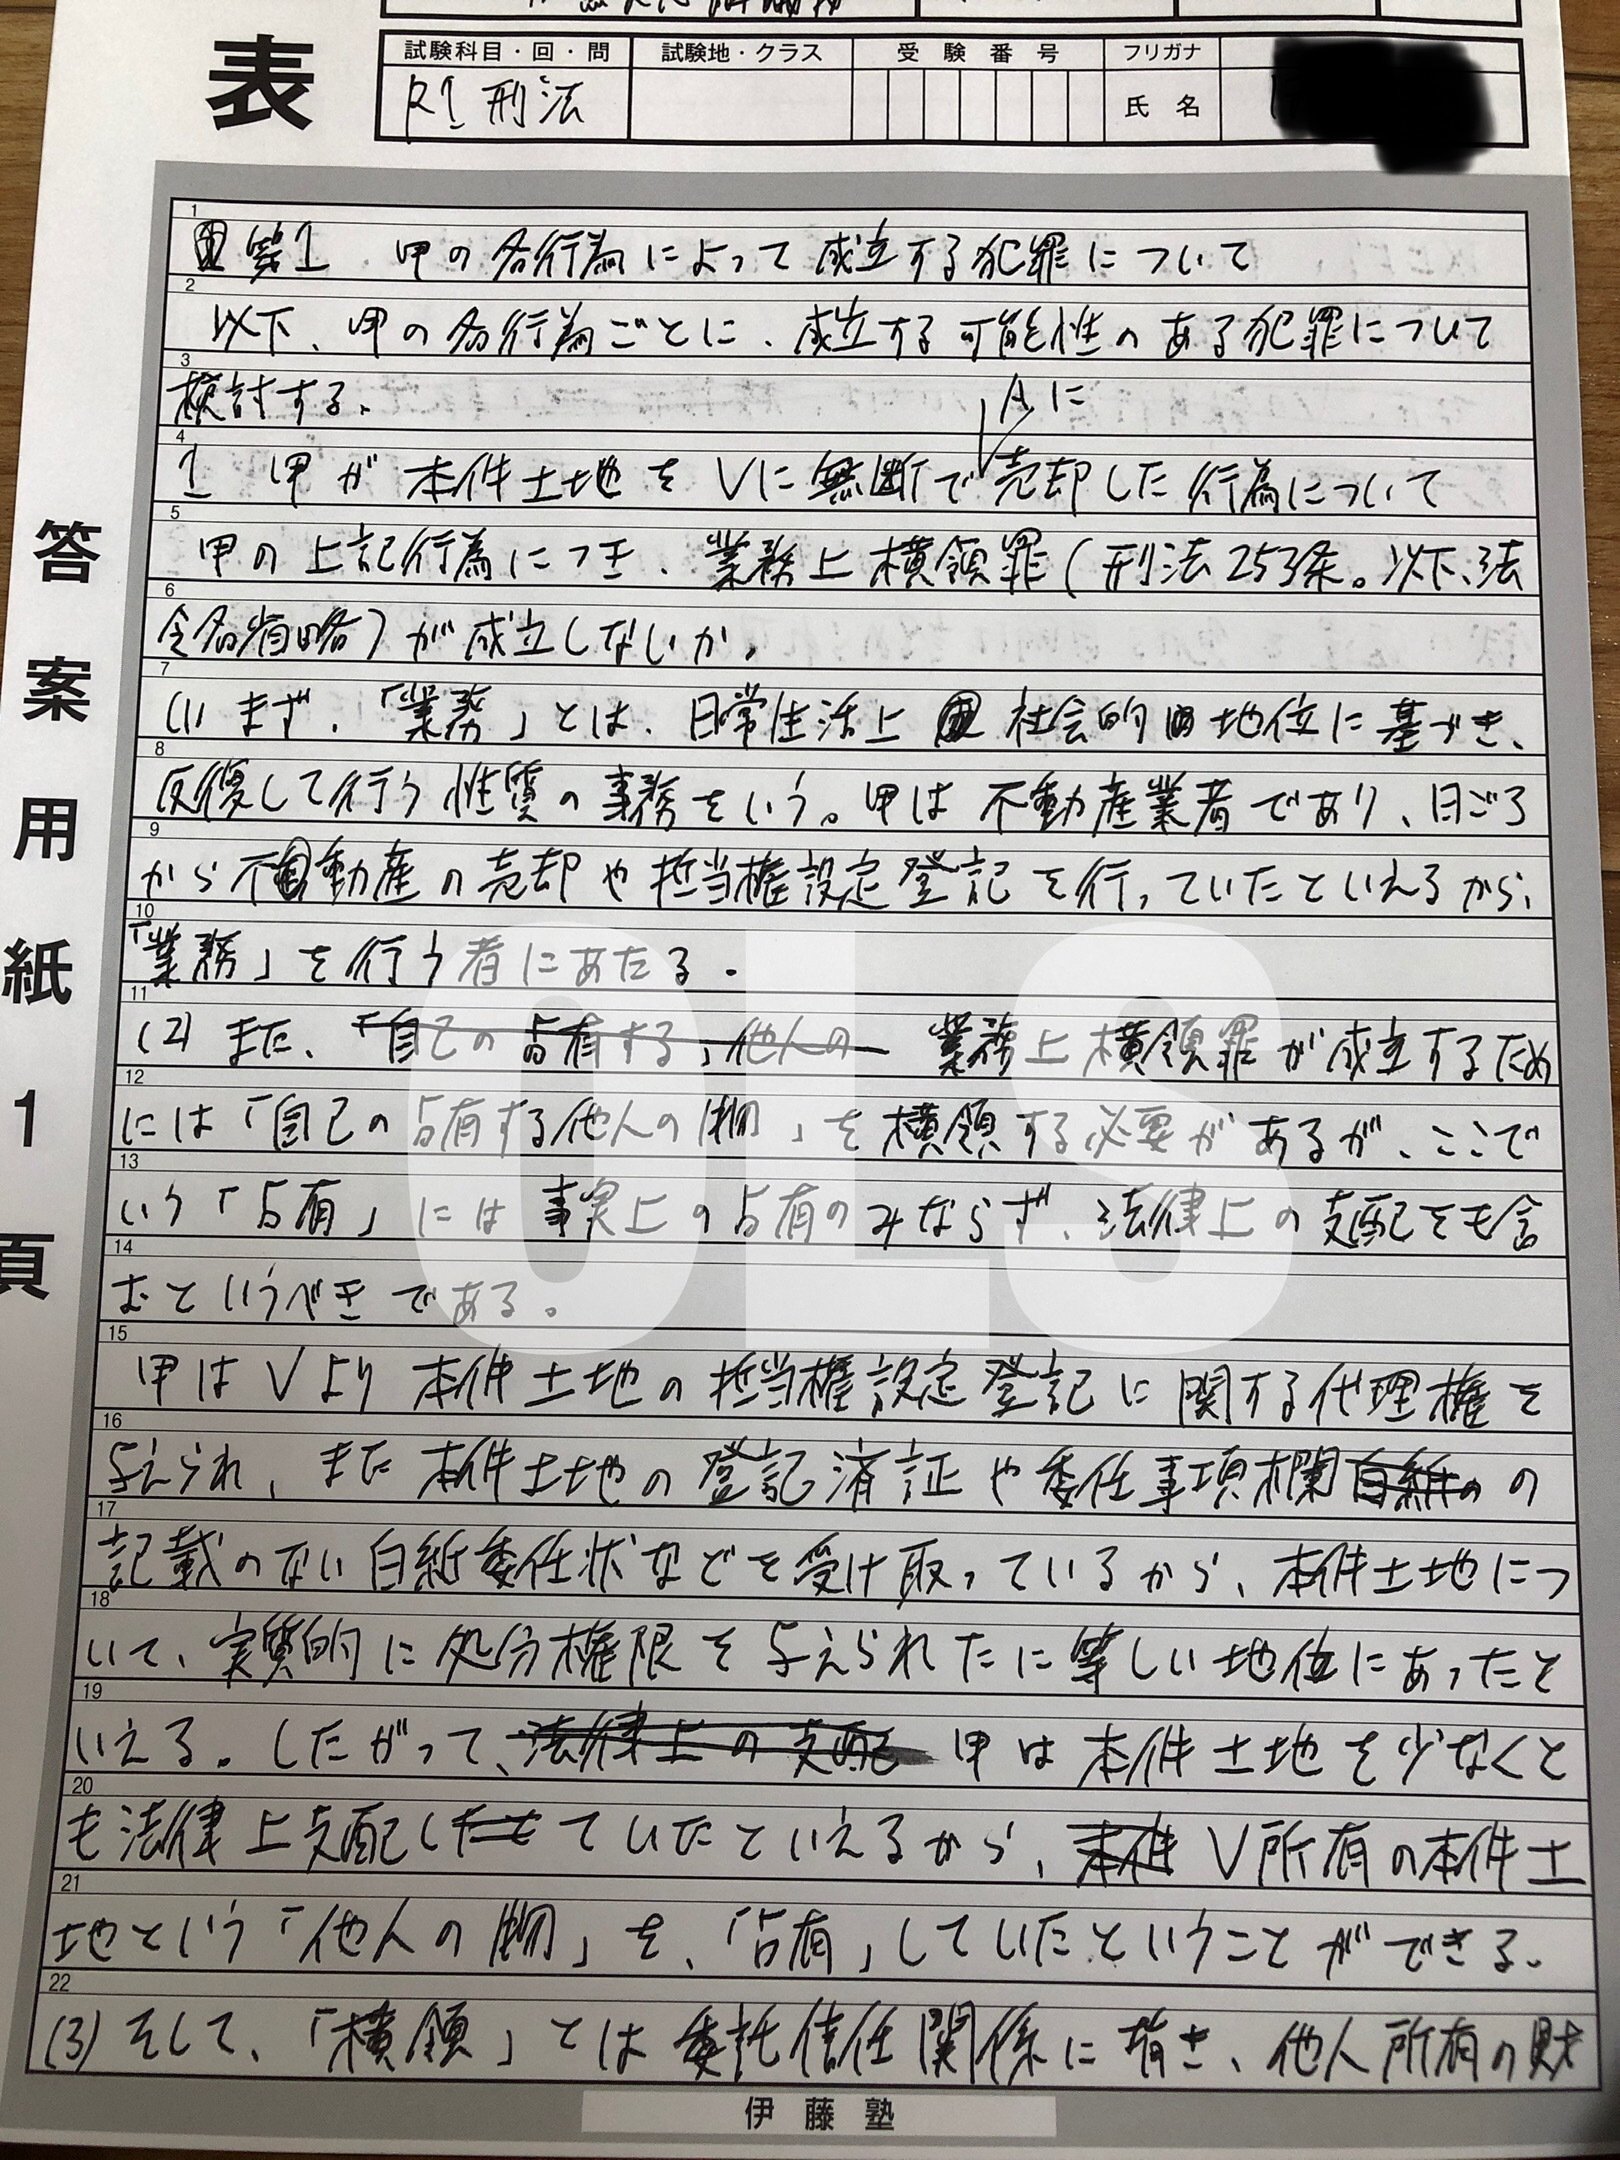 表
試験科目・回・問
試験地・クラス
受験番号
フリガナ
R1 刑法
氏名
答案用紙1頁
1
第1 甲の各行為によって成立する犯罪について
2
以下、甲の各行為ごとに、成立する可能性のある犯罪について
3
検討する。
Aに
4
1 甲が本件土地をVに無断で売却した行為について
5
甲の上記行為につき、業務上横領罪(刑法253条。以下、法
6
令名省略)が成立しないか。
7
(1) まず、「業務」とは、日常生活上社会的地位に基づき、
8
反復して行う性質の事務をいう。甲は不動産業者であり、日ごろ
9
から不動産の売却や抵当権設定登記を行っていたといえるから、
10
「業務」を行う者にあたる。
11
(2) また、「自己の占有する」他人の 業務上横領罪が成立するため
12
には「自己の占有する他人の物」を横領する必要があるが、ここで
13
いう「占有」には事実上の占有のみならず、法律上の支配をも含
14
むというべきである。
15
甲はVより本件土地の抵当権設定登記に関する代理権を
16
与えられ、また本件土地の登記済証や委任事項欄白紙のの
17
記載のない白紙委任状などを受け取っているから、本件土地につ
18
いて、実質的に処分権限を与えられたに等しい地位にあったと
19
いえる。したがって、法律上の支配 甲は本件土地を少なくと
20
も法律上支配していたといえるから、本件 V所有の本件土
21
地という「他人の物」を、「占有」していたということができる。
22
(3) そして、「横領」とは委託信任関係に背き、他人所有の財
OLS
伊藤塾